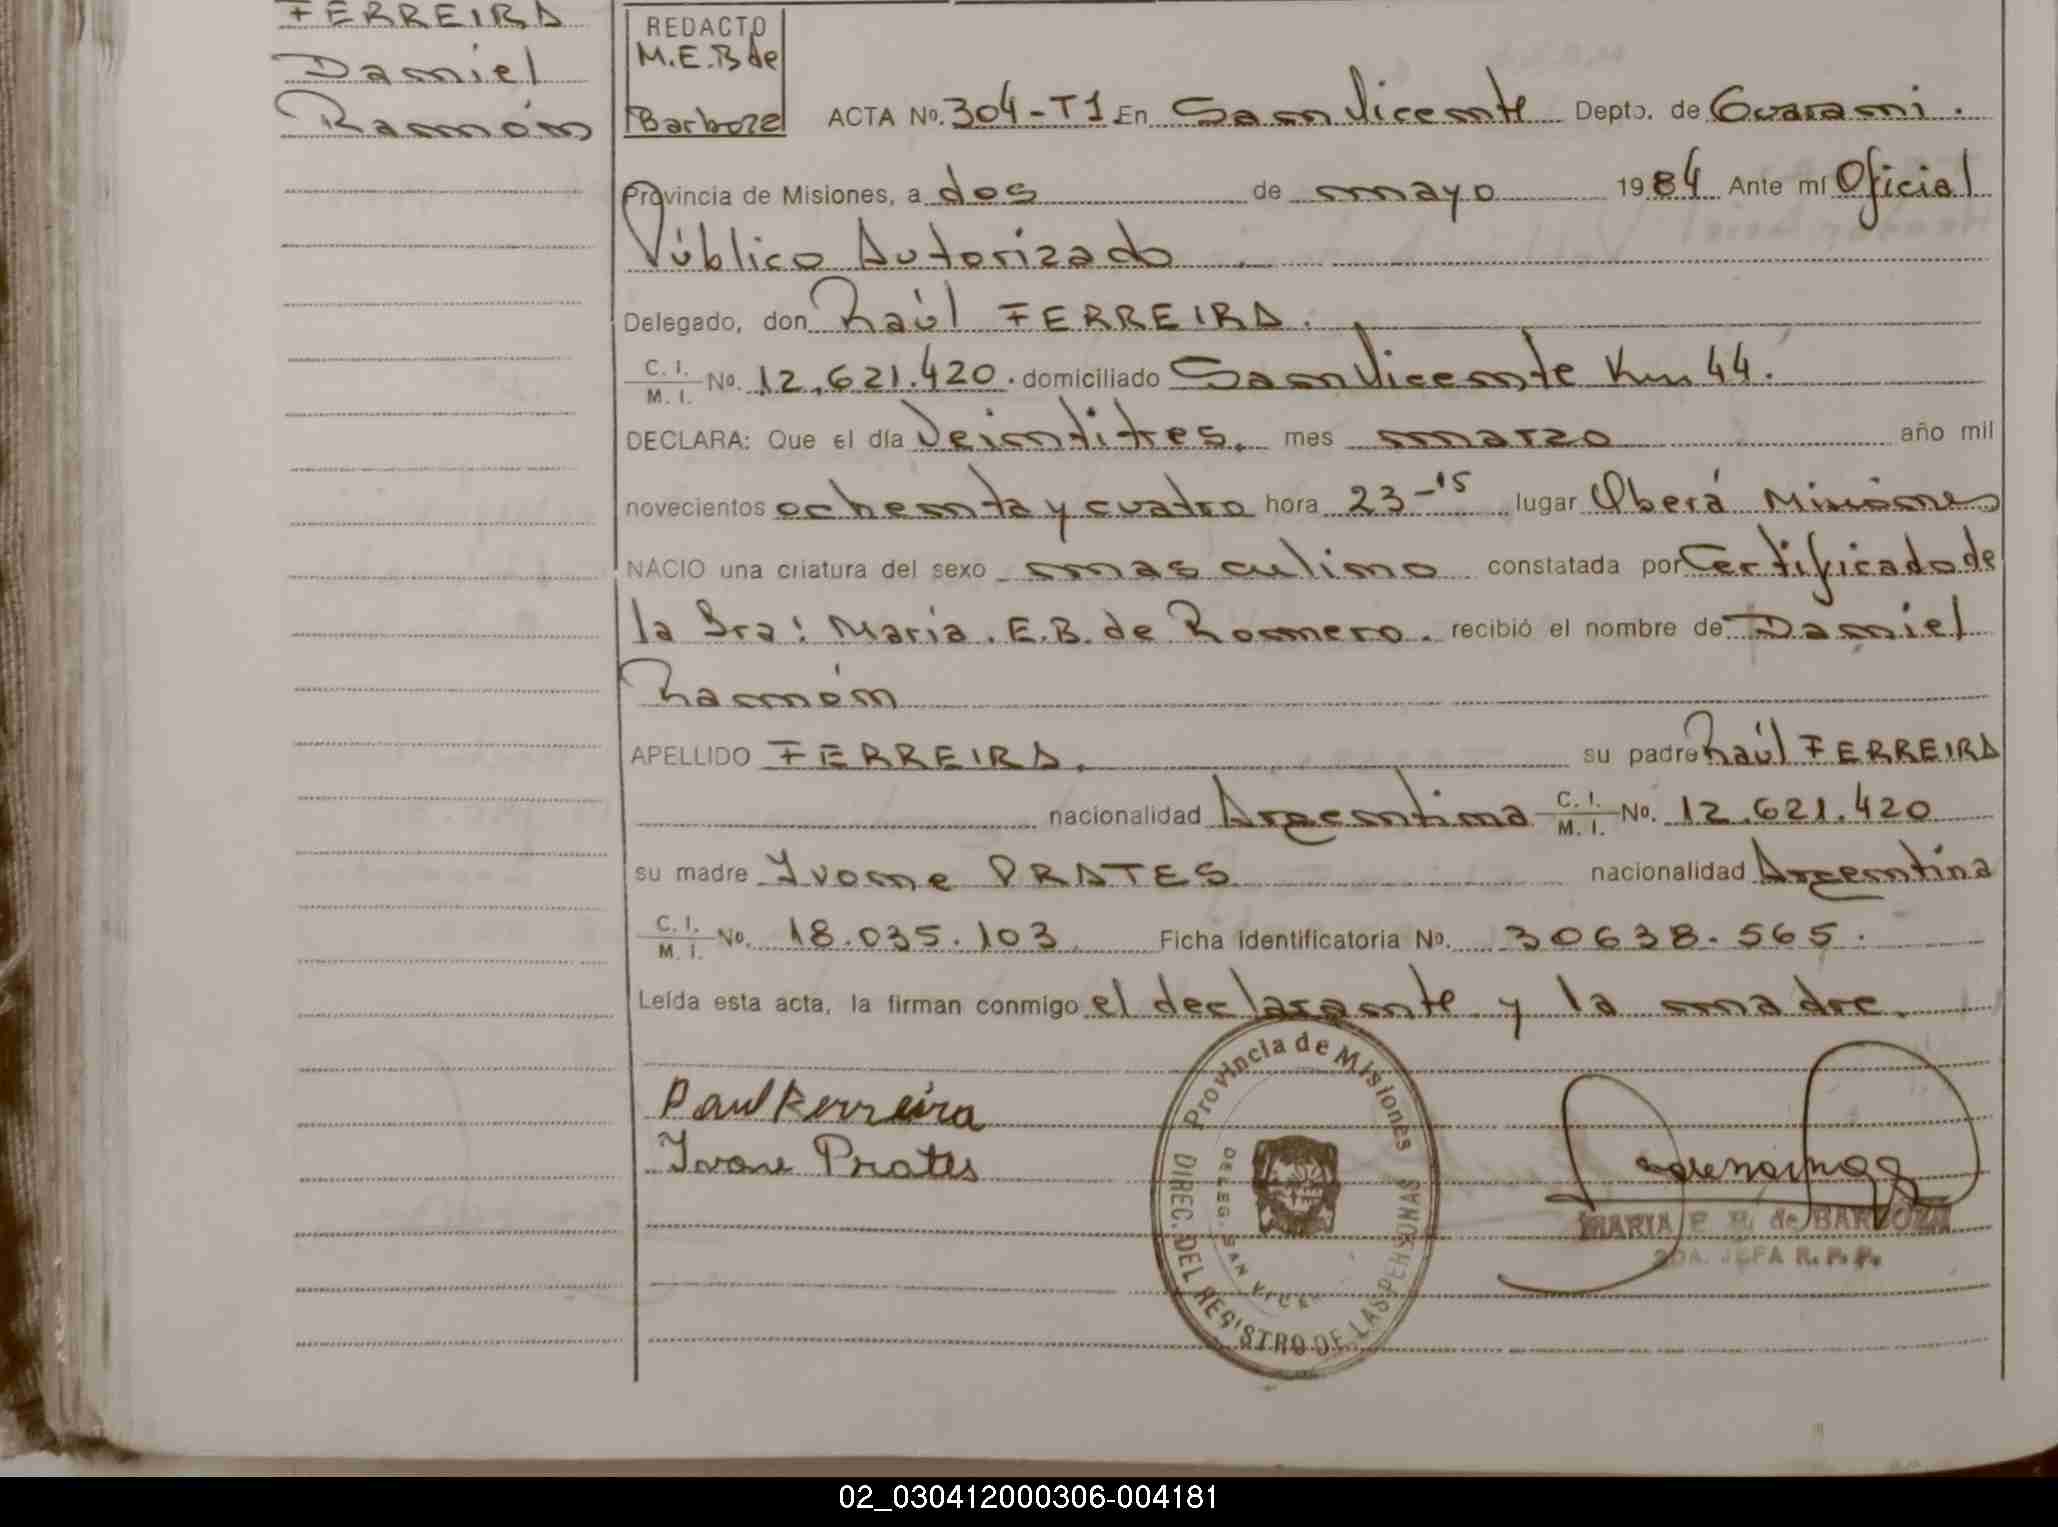 FERREIRA
Daniel
Ramón
REDACTO
M.E.B de
Barboza
ACTA No. 304-T1 En San Vicente Depto. de Guarani.
Provincia de Misiones, a dos de mayo 1984 Ante mí Oficial
Público Autorizado
Delegado, don Raúl FERREIRA.
C. I. / M. I. No. 12.621.420. domiciliado San Vicente Km 44.
DECLARA: Que el día Veintitres. mes marzo año mil
novecientos ochenta y cuatro hora 23-15 lugar Oberá Misiones
NACIO una criatura del sexo masculino constatada por Certificado de
la Sra: Maria. E.B. de Romero. recibió el nombre de Daniel
Ramón
APELLIDO FERREIRA. su padre Raúl FERREIRA
nacionalidad Argentina C. I. / M. I. No. 12.621.420
su madre Ivone PRATES nacionalidad Argentina
C. I. / M. I. No. 18.035.103. Ficha identificatoria No. 30638.565.
Leída esta acta, la firman conmigo el declarante y la madre.
Raul Ferreira
Ivone Prates
Provincia de Misiones
DIREC. DEL REGISTRO DE LAS PERSONAS
DELEG. SAN VICE
MARIA E. B. de BARBOZA
2DA. JEFA R. P. P.
02_030412000306-004181